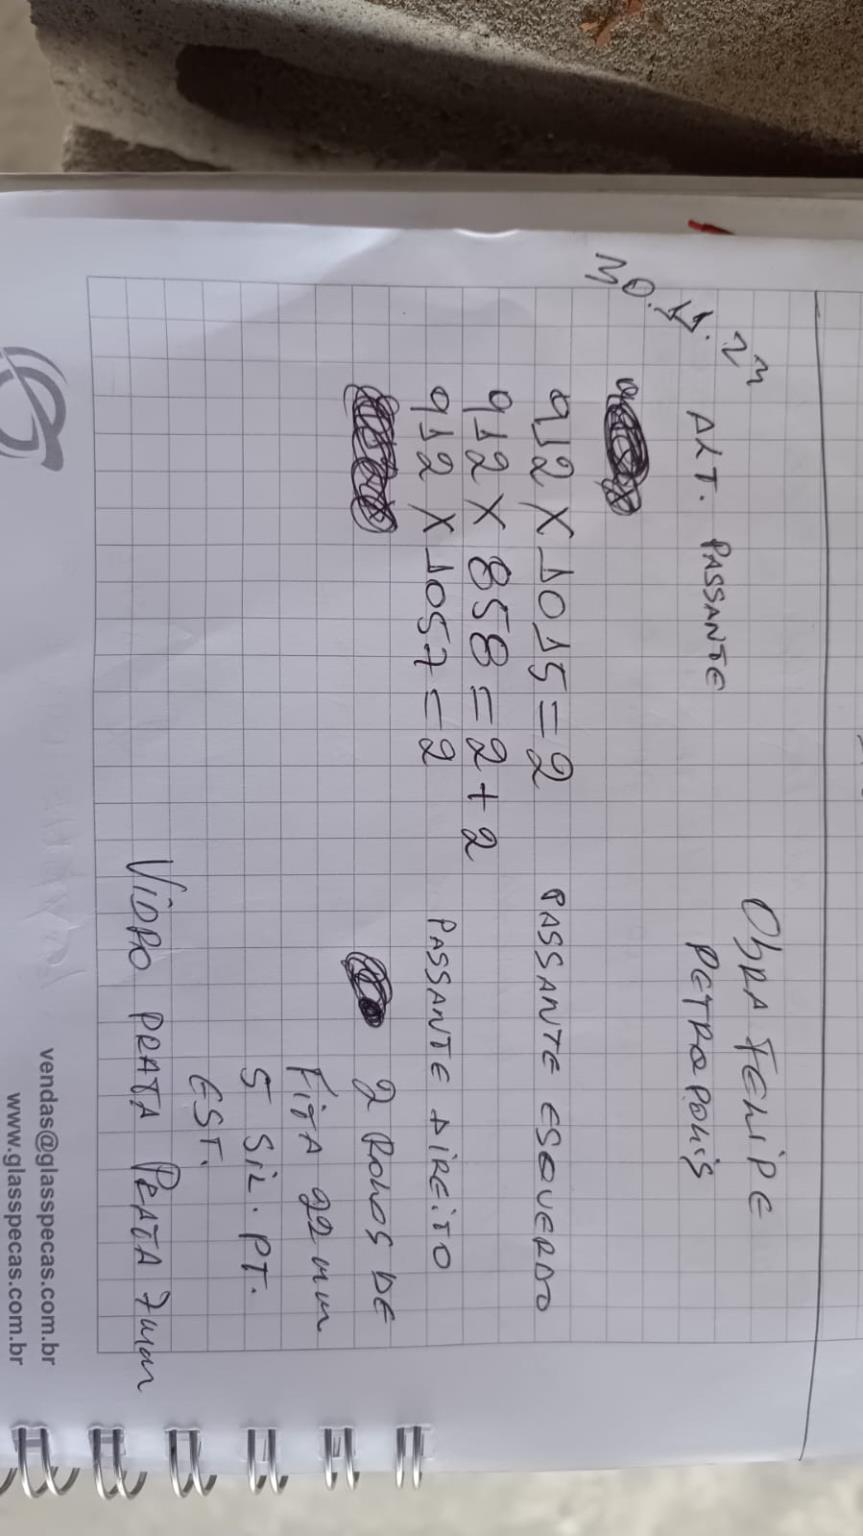 30.11.23
OBRA FELIPE
ALT. PASSANTE
PETROPOLIS
912 X 1015 = 2 PASSANTE ESQUERDO
912 X 858 = 2 + 2
912 X 1057 = 2 PASSANTE DIREITO
2 ROLOS DE
FITA 22 mm
5 SIL. PT.
EST.
VIDRO PRATA PRATA 7mm
vendas@glasspecas.com.br
www.glasspecas.com.br